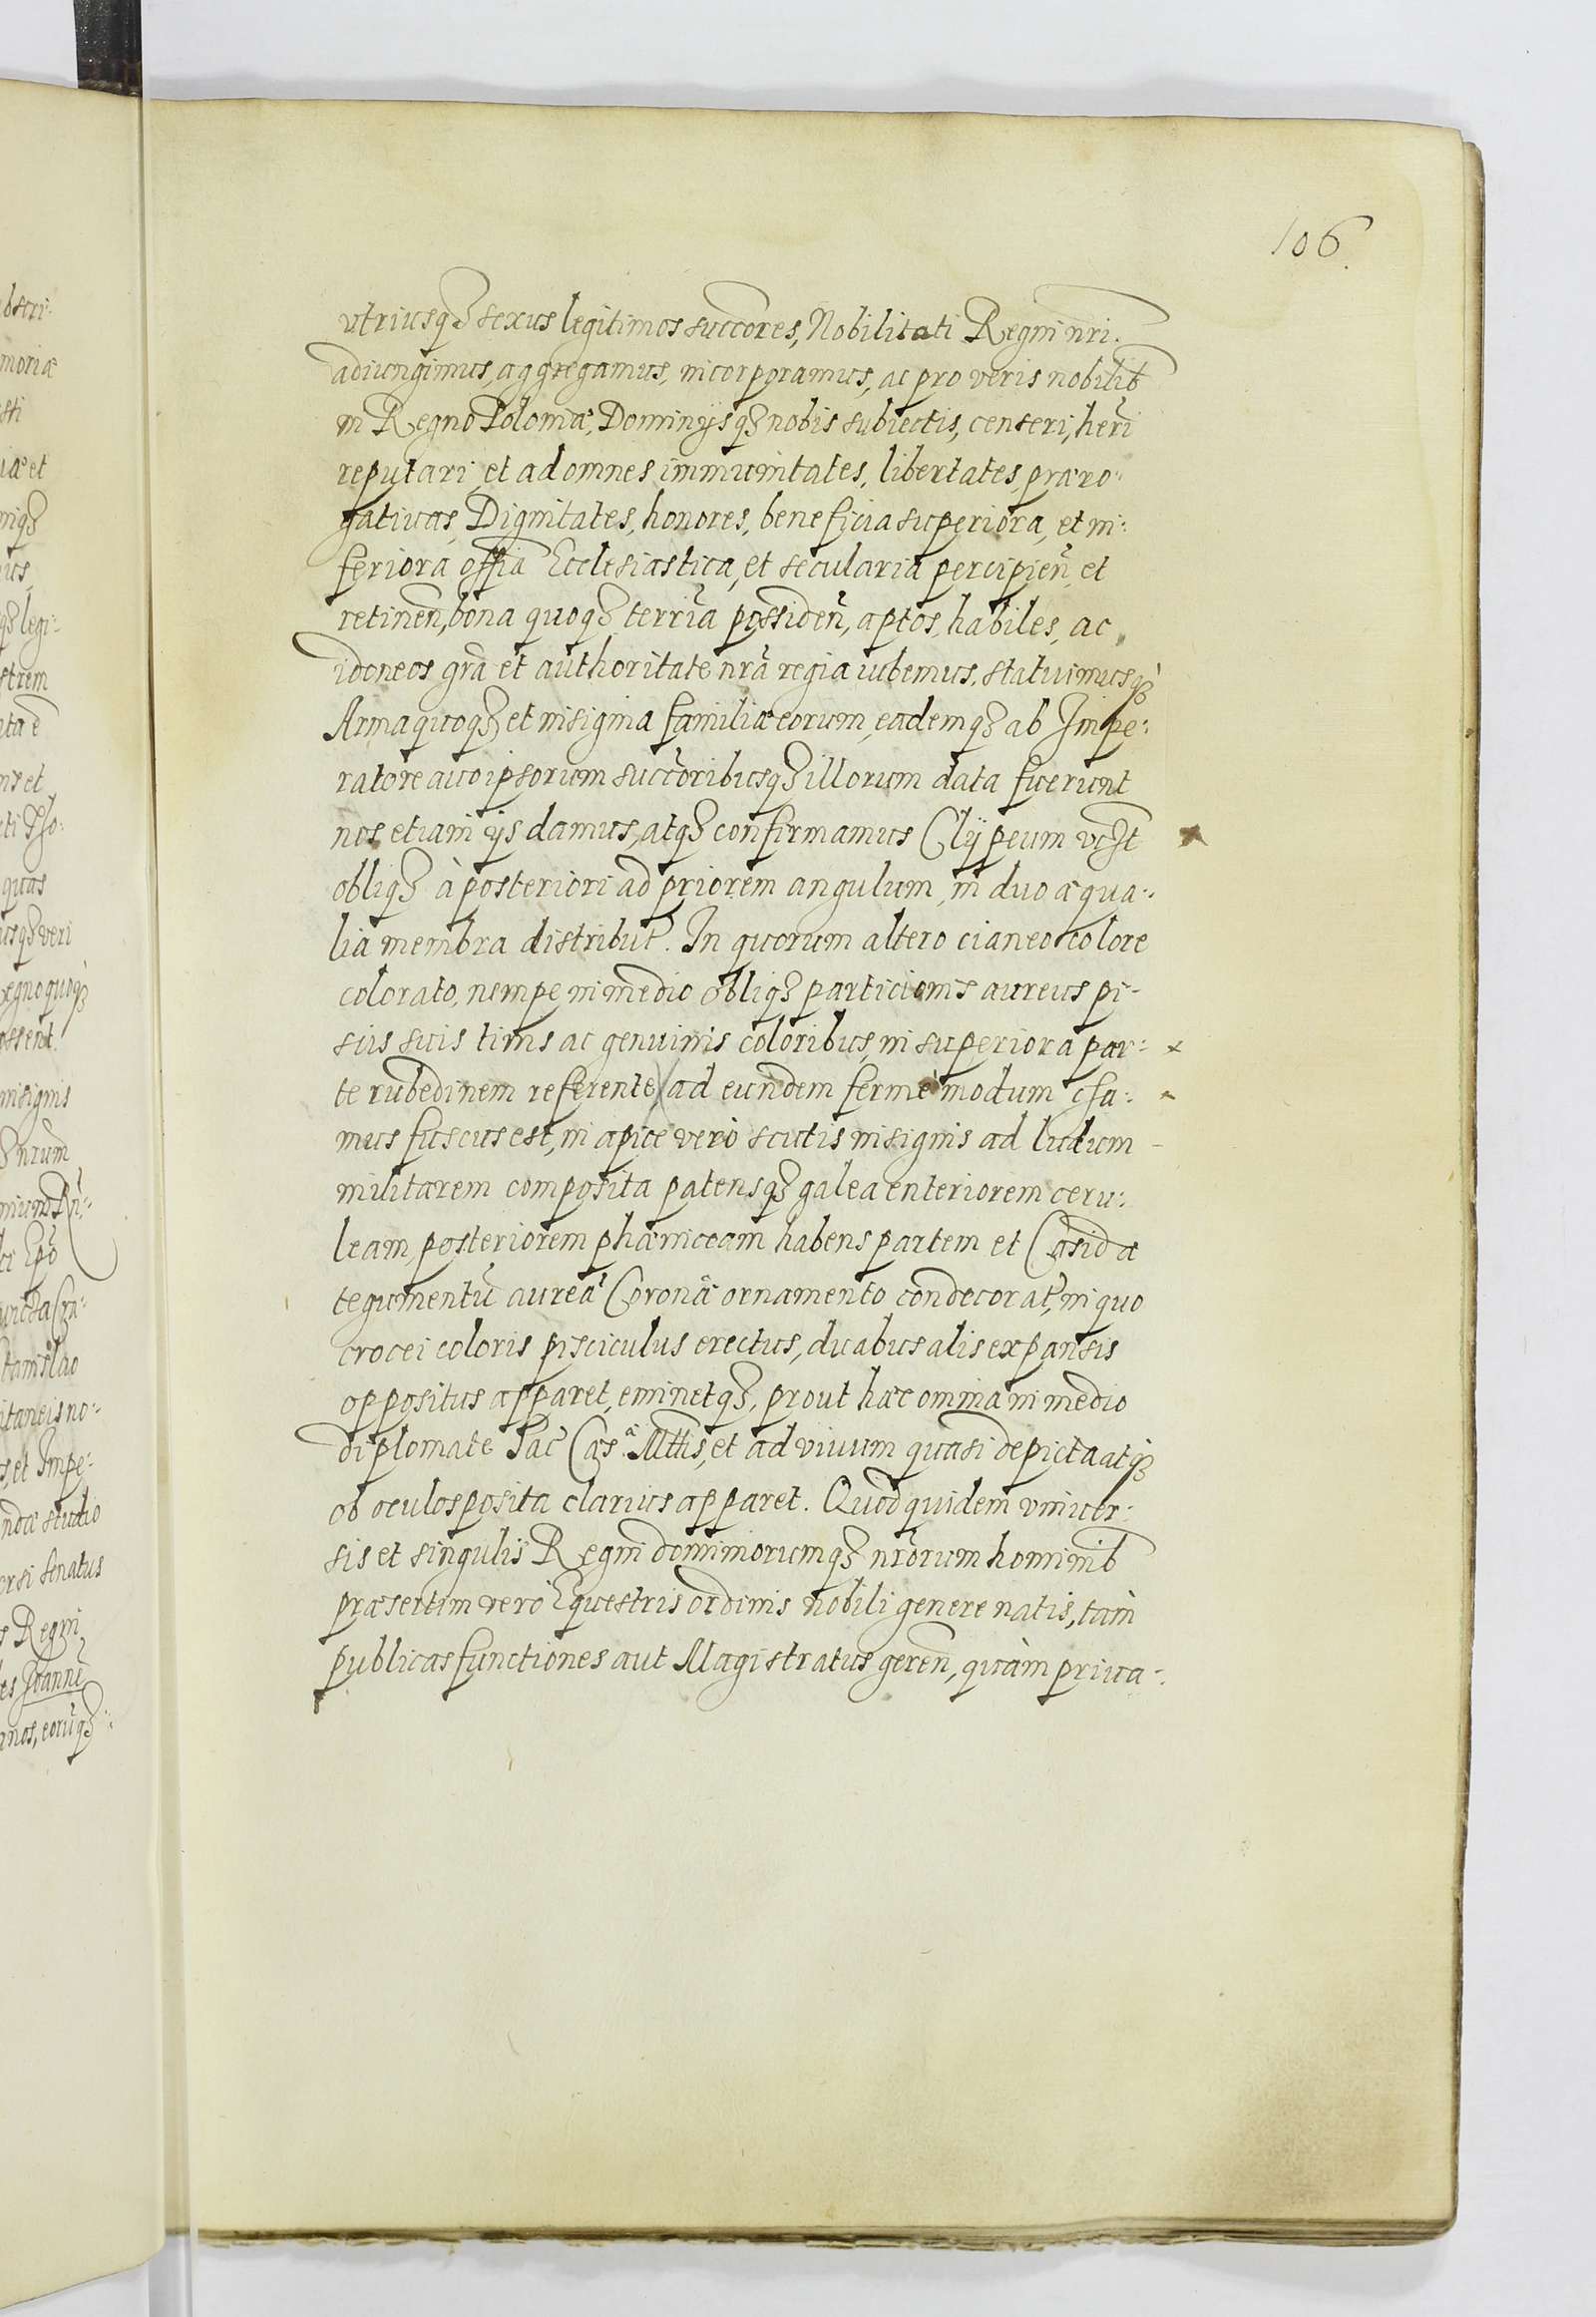 106.
utriusq₃ sexus legitimos succōres, Nobilitati Regni nr̄i.
adiungimus, aggregamus, incorporamus, ac pro veris nobilib
in Regno Poloniæ, Dominijsq₃ nobis subiectis, censeri, her̄i
reputari, et ad omnes immunitates, libertates, præro-
gatiuas, Dignitates, honores, beneficia superiora, et in:
feriora offīa Ecclesiastica, et secularia percipien̄, et
retinen̄, bona quoq₃ terrīa possiden̄, aptos, habiles, ac
idoneos grā et authoritate nrā regia iubemus, statuimusq₃
Arma quoq₃ et insignia familiæ eorum, eademq₃ ab Impe:
ratore auo ipsorum succōribusq₃ illorum data fuerunt
nos etiam ijs damus, atq₃ confirmamus Clÿpeum
obliq₃ à posteriori ad priorem angulum, in duo æqua-
lia membra distribut̄. In quorum altero cianeo colore
colorato, nempe in medio obliq₃ particionis aureus pi-
scis suis tinis ac genuinis coloribus, in superiora par:
te rubedinem referente, ad eundem fermè modum
mus fuscus est, in apice verò scutis insignis ad ludum
militarem composita patensq₃ galea enteriorem ceru:
leam, posteriorem phæniceam habens partem et Casidæ
tegumentū aureâ Coronâ ornamento condecorat̄, in quo
crocei coloris pisciculus erectus, duabus alis expansis
oppositus apparet, eminetq₃, prout hæc omnia in medio
diplomate Sac̄ Cæs.ᵃ Mttis, et ad viuum quasi depicta atq₃
ob oculos posita clarius apparet. Quod quidem vniuer:
sis et singulis Regni dominiorumq₃ nrōrum hominib
præsertim verò Equestris ordinis nobili genere natis, tàm
publicas functiones aut Magistratus geren̄, quàm priua-